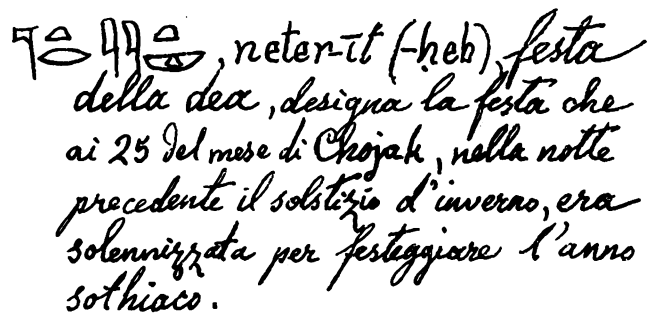 𓊹𓏏𓂋𓇋𓇋𓏏𓎱, neter-īt (-ḥeb), festa
della dea, designa la festa che
ai 25 del mese di Chojak, nella notte
precedente il solstizio d'inverno, era
solennizzata per festeggiare l'anno
sothiaco.